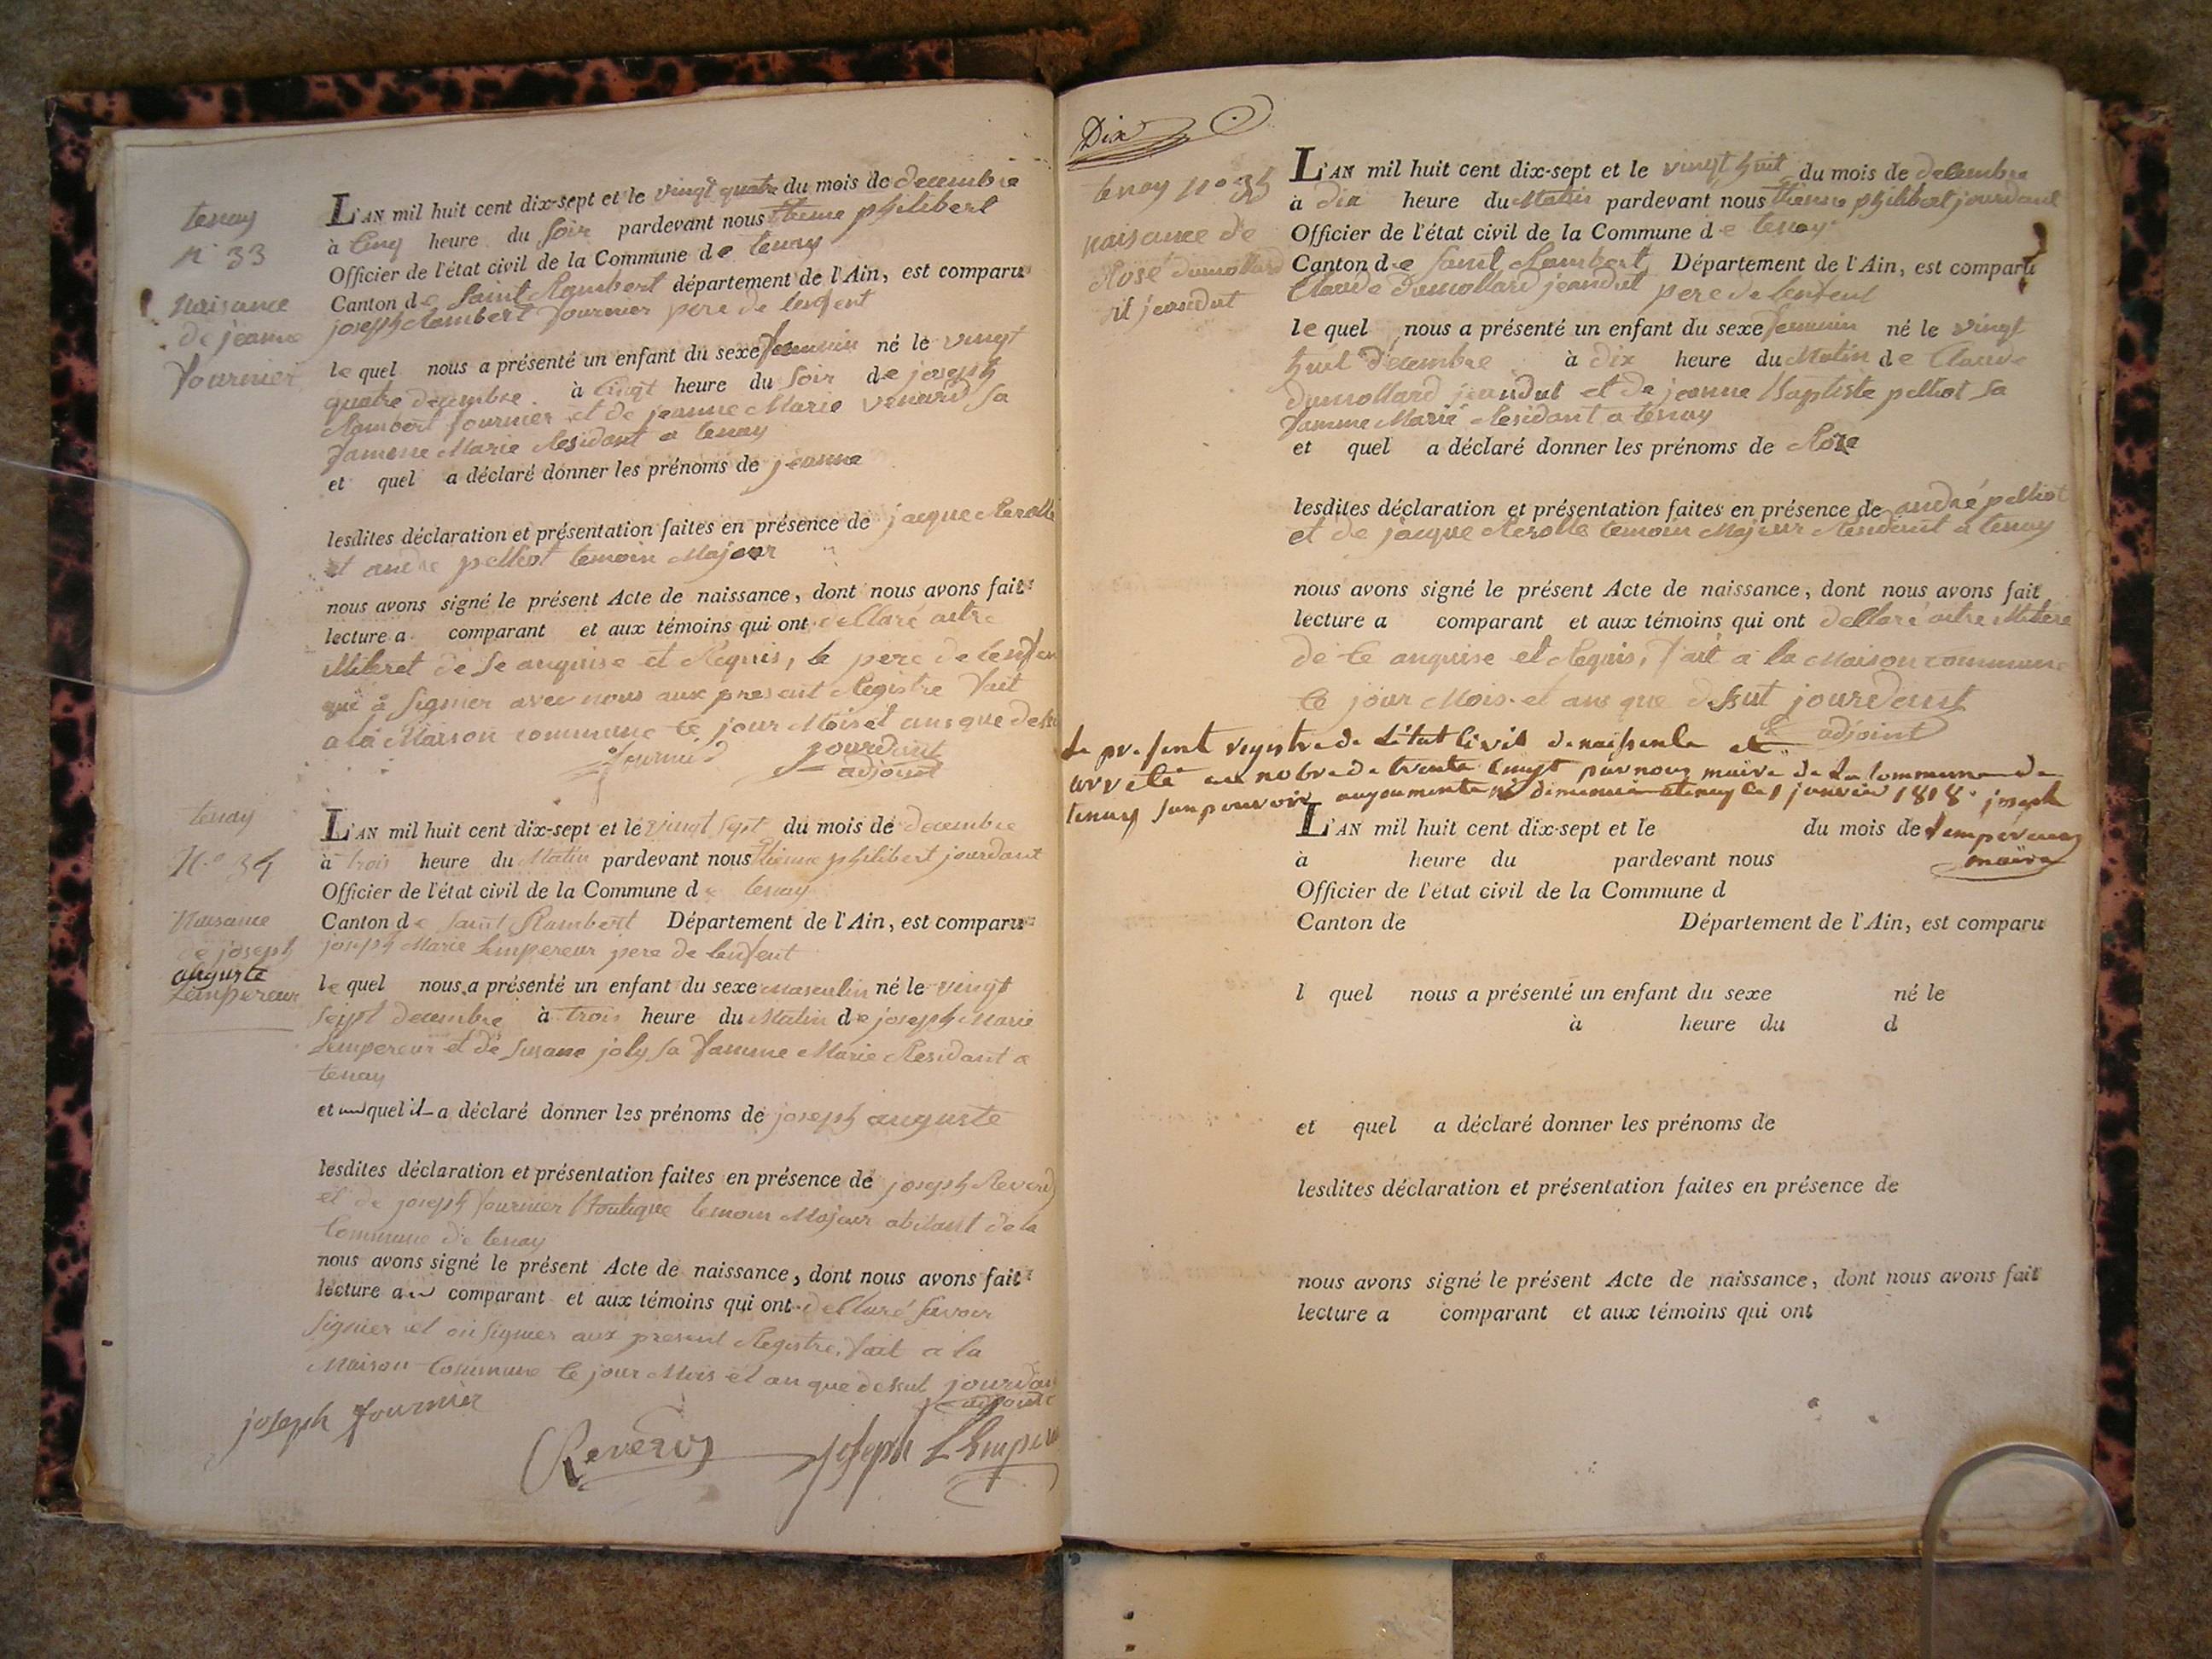 tenay
n° 33
naisance
de jeanne
fournier
L'AN mil huit cent dix-sept et le vingt quatre du mois de decembre
à Cinq heure du Soir pardevant nous Etienne philibert
Officier de l'état civil de la Commune de tenay
Canton de Saint Rambert département de l'Ain, est comparu
joseph Rambert fournier pere de lenfent
le quel nous a présenté un enfant du sexe femmin né le vingt
quatre decembre à Cinqt heure du Soir de joseph
Rambert fournier et de jeanne Marie venard Sa
famme Marie Residant a tenay
et quel a déclaré donner les prénoms de jeanne
lesdites déclaration et présentation faites en présence de jacque Rerolle
et andre pelliot temoin Majeur
nous avons signé le présent Acte de naissance, dont nous avons fait
lecture a comparant et aux témoins qui ont dellaré aitre
illiteret de Se anquise et Requis, le pere de lenfen
qui à Signier avec nous aux present Registre fait
a la Maison commune Ce jour Mois et ans que de
fournié jourdant
adjoint
tenay
N.° 34
Naisance
de joseph
auguste
Lempereur
L'AN mil huit cent dix-sept et le vingt sept du mois de decembre
à trois heure du Matin pardevant nous Etienne philibert jourdant
Officier de l'état civil de la Commune de tenay
Canton de Saint Rambert Département de l'Ain, est comparu
joseph Marie Lempereur pere de lenfent
le quel nous a présenté un enfant du sexe masculin né le vingt
Sept decembre à trois heure du Matin de joseph Marie
Lempereur et de Susane joly Sa famme Marie Residant a
tenay
et au quel il a déclaré donner les prénoms de joseph auguste
lesdites déclaration et présentation faites en présence de joseph Reverd
et de joseph fournier Boutique temoin Majeur abitant de la
Commune de tenay
nous avons signé le présent Acte de naissance, dont nous avons fait
lecture au comparant et aux témoins qui ont dellaré Savoir
Signier et on Signier aux present Registre, fait a la
Maison Commune Ce jour Mois et an que desut jourdan
adjoint
joseph fournier
Reverdy joseph LEmper
Dix
tenay n° 35
naisance de
Rose dumollard
dit jeandut
L'AN mil huit cent dix-sept et le vingt huit du mois de decembre
à dix heure du Matin pardevant nous Etienne philibert jourdant
Officier de l'état civil de la Commune de tenay
Canton de Saint Rambert Département de l'Ain, est comparu
Claude dumollard jeandut pere de lenfent
le quel nous a présenté un enfant du sexe femmin né le vingt
huit decembre à dix heure du Matin de Claude
dumollard jeandut et de jeanne Baptiste pelliot Sa
famme Marié Residant a tenay
et quel a déclaré donner les prénoms de Rose
lesdites déclaration et présentation faites en présence de andré pelliot
et de jacque Rerolle temoin Majeur Residant a tenay
nous avons signé le présent Acte de naissance, dont nous avons fait
lecture a comparant et aux témoins qui ont dellaré aitre illitere
de Ce anquise et Requis, fait à la Maison commune
Ce jour Mois et ans que desut jourdant
adjoint
Le present registre de Létat Civil de naissence et
arrété au nobre de trente Cinqt par nous maire de La Commune de
tenay San pouvoir augoumente ni diminuer a tenay le 1 janvier 1818 joseph
Lempereur
maire
L'AN mil huit cent dix-sept et le du mois de
à heure du pardevant nous
Officier de l'état civil de la Commune d
Canton de Département de l'Ain, est comparu
l quel nous a présenté un enfant du sexe né le
à heure du d
et quel a déclaré donner les prénoms de
lesdites déclaration et présentation faites en présence de
nous avons signé le présent Acte de naissance, dont nous avons fait
lecture a comparant et aux témoins qui ont